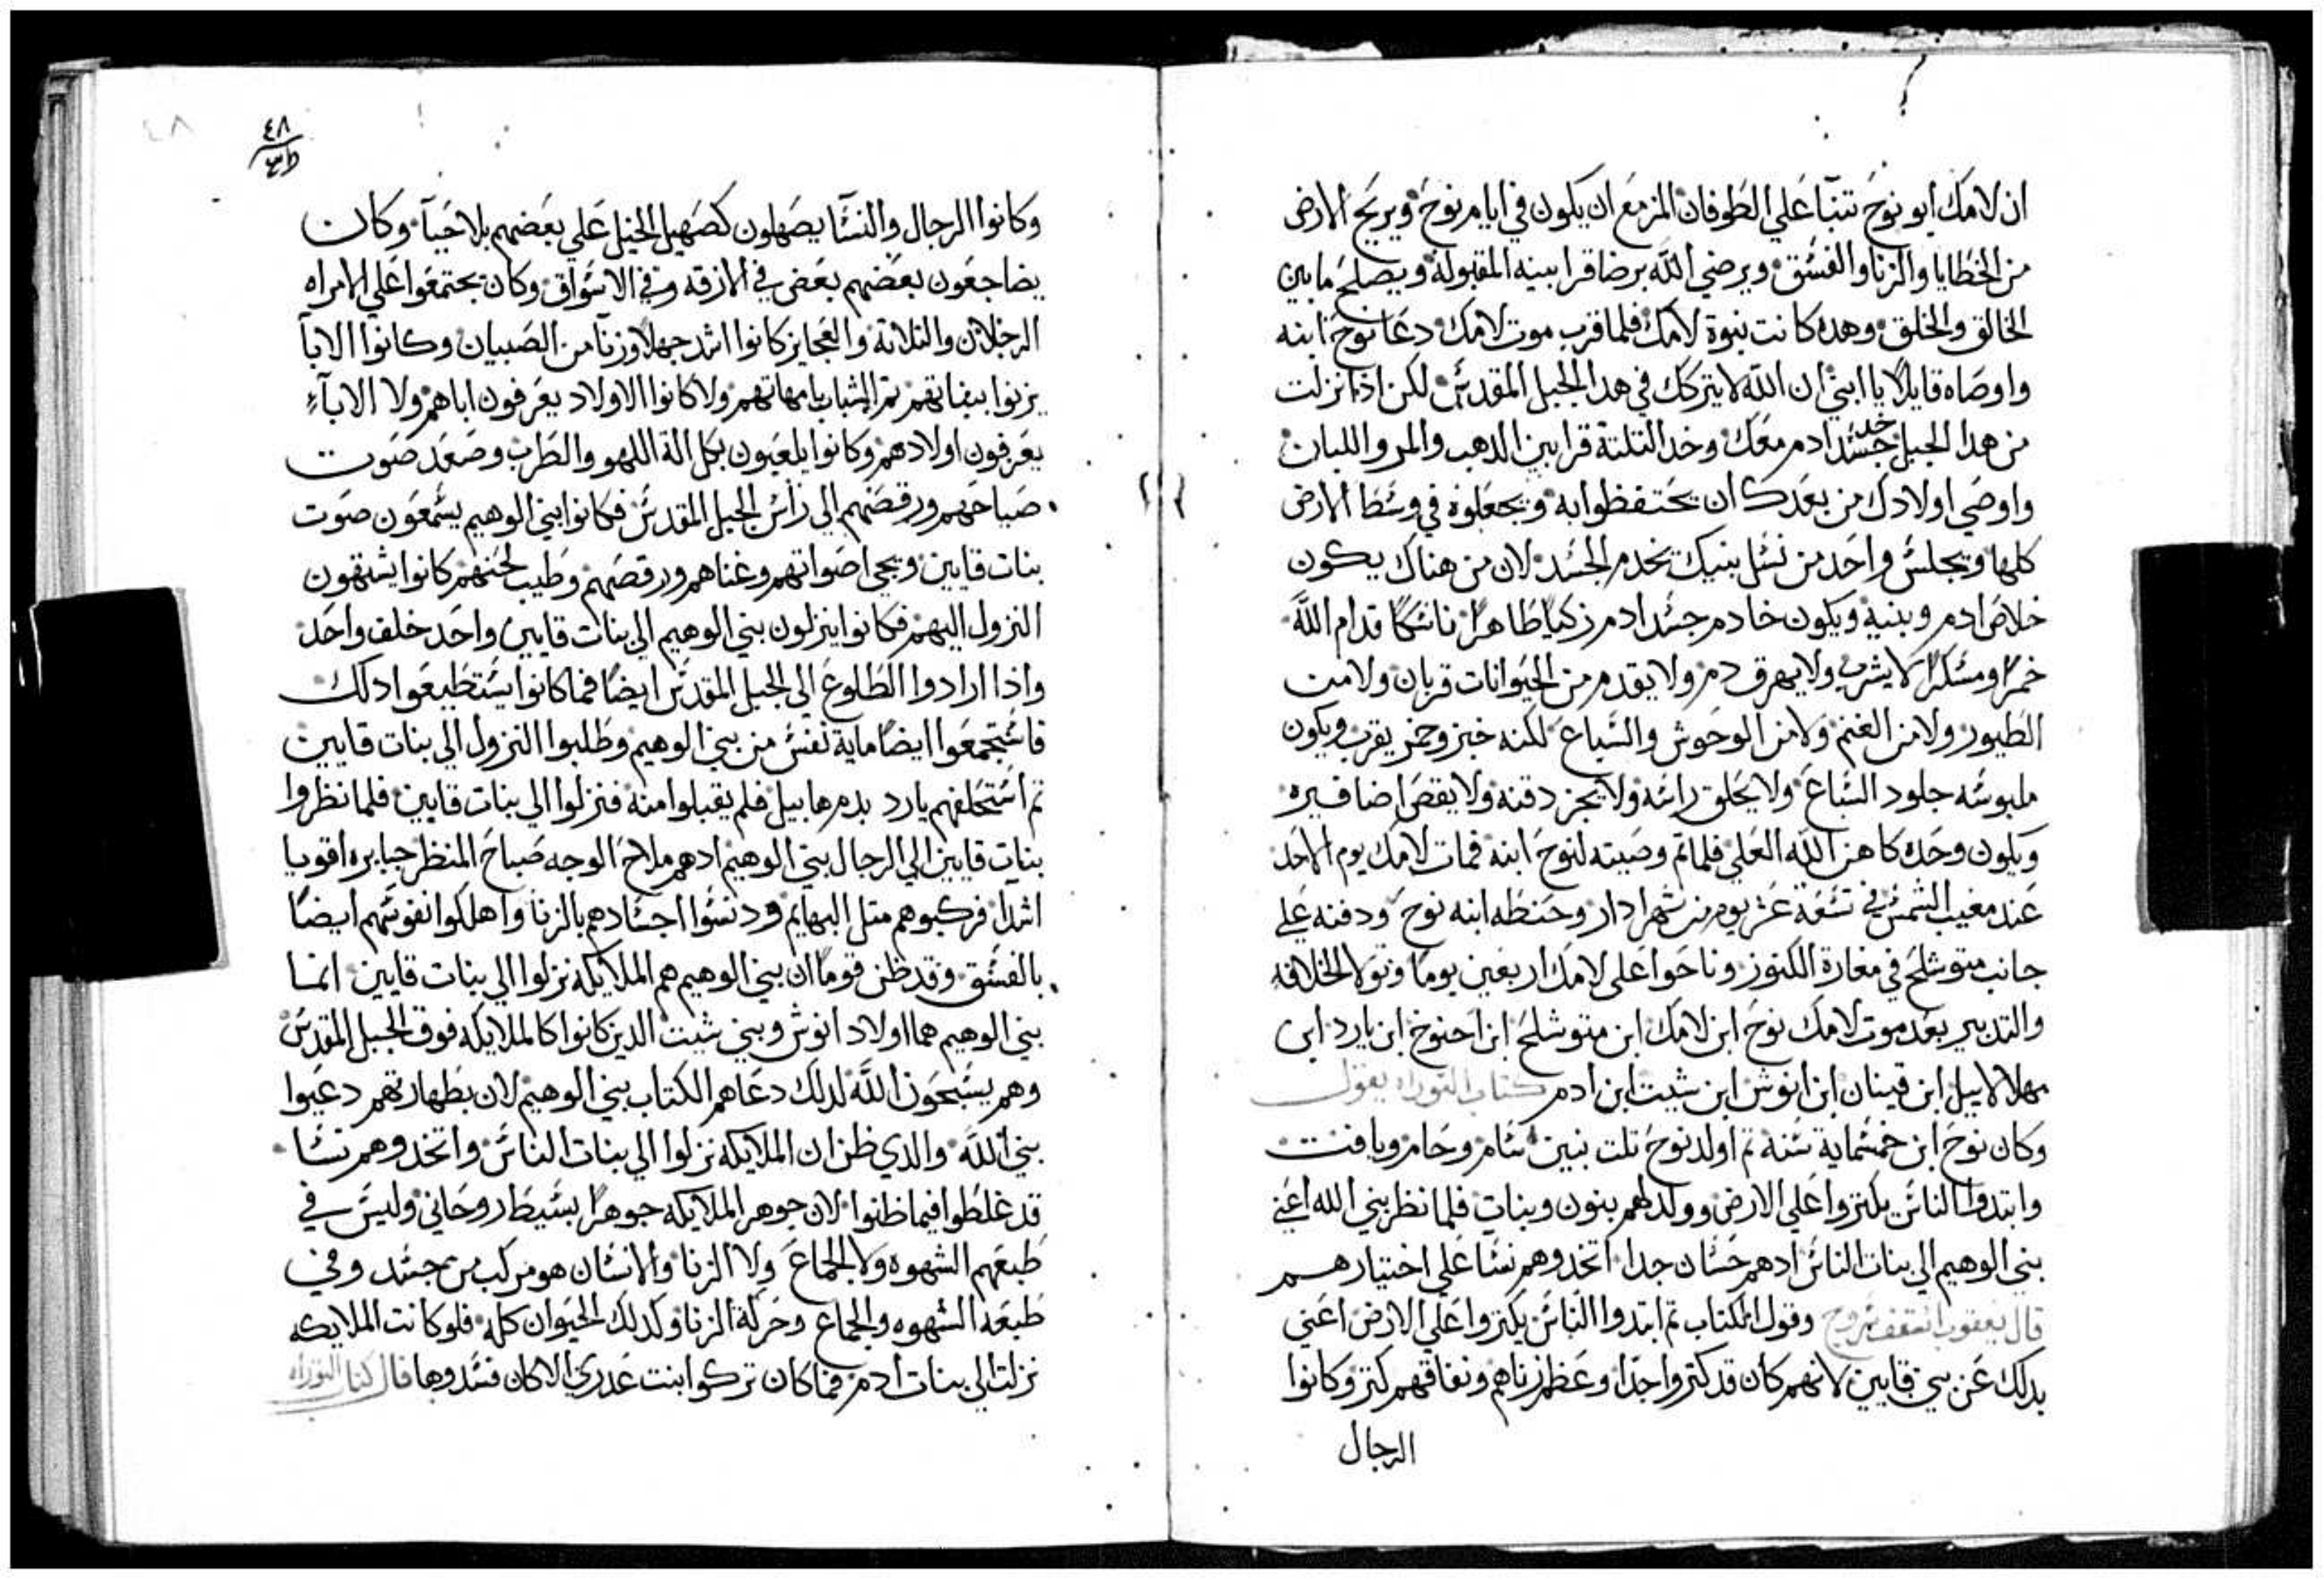 ان لامك ابو نوح تنبا علي الطوفان المزمع ان يكون في ايام نوح ويريح الارض
من الخطايا والزنا والفسق ويرضي الله برضا قرابينه المقبولة ويصلح ما بين
الخالق والخلق وهده كانت نبوة لامك فلما قرب موت لامك دعا نوح ابنه
واوصاه قايلا يا ابني ان الله لا يتركك في هدا الجبل المقدس لكن اذا نزلت
من هدا الجبل خد جسد ادم معك وخد التلتة قرابين الدهب والمر واللبان
واوصي اولادك من بعدك ان يحتفظوا به ويجعلوه في وسط الارض
كلها ويجلس واحد من نسل بنيك يخدم الجسد لان من هناك يكون
خلاص ادم وبنيه ويكون خادم جسد ادم زكيا طاهرا ناسكا قدام الله
خمرا ومسكرا لا يشرب ولا يهرق دم ولا يقدم من الحيوانات قربان ولا من
الطيور ولا من الغنم ولا من الوحوش والسباع لكنه خبز وخمر يقرب ويكون
ملبوسه جلود السباع ولا يحلق راسه ولا يجز دقنه ولا يقص اضافيره
ويكون وحده كاهن الله العلي فلما تم وصيته لنوح ابنه فمات لامك يوم الاحد
عند مغيب الشمس في تسعة عشر يوم من شهر ادار وحنطه ابنه نوح ودفنه علي
جانب متوشلح في مغارة الكنوز وناحوا علي لامك اربعين يوما وتولا الخلافه
والتدبير بعد موت لامك نوح ابن لامك ابن متوشلح ابن احنوخ ابن يارد ابن
مهلالاييل ابن قينان ابن انوش ابن شيت ابن ادم كتاب التوراه يقول
وكان نوح ابن خمسماية سنه تم اولد نوح تلت بنين سام وحام ويافت
وابتدوا الناس يكتروا علي الارض وولد لهم بنون وبنات فلما نظر بني الله اعني
بني الوهيم الي بنات الناس ادهم حسان جدا اتخدوهم نسا علي اختيارهم
قال يعقوب اسقف سروج وقول الكتاب تم ابتدوا الناس يكتروا علي الارض اعني
بدلك عن بني قايين لانهم كان قد كتروا جدا وعظم زناهم ونفاقهم كتر وكانوا
الرجال
٤٨
وكانوا الرجال والنسا يصهلون كصهيل الخيل علي بعضهم بلا حيآ وكان
يضاجعون بعضهم بعض في الازقه وفي الاسواق وكان يجتمعوا علي الامراه
الرجلان والتلاتة والعجايز كانوا اشد جهلا وزنآ من الصبيان وكانوا الابآ
يزنوا ببناتهم تم الشباب بامهاتهم ولا كانوا الاولاد يعرفون اباهم ولا الابآء
يعرفون اولادهم وكانوا يلعبون بكل الة اللهو والطرب وصعد صوت
صياحهم ورقصهم الي راس الجبل المقدس فكانوا بني الوهيم يسمعون صوت
بنات قايين ويجي اصواتهم وغناهم ورقصهم وطيب لحنهم كانوا يشتهون
النزول اليهم فكانوا ينزلون بني الوهيم الي بنات قايين واحد خلف واحد
واذا ارادوا الطلوع الي الجبل المقدس ايضا فما كانوا يستطيعوا دلك
فاستجمعوا ايضا ماية نفس من بني الوهيم وطلبوا النزول الي بنات قايين
تم استحلفهم يارد بدم هابيل فلم يقبلوا منه فنزلوا الي بنات قايين فلما نظروا
بنات قايين الي الرجال بني الوهيم ادهم ملاح الوجه صباح المنظر جبابره اقويا
اشدا فركبوهم متل البهايم ودنسوا اجسادهم بالزنا واهلكوا نفوسهم ايضا
بالفسق وقد ظن قوما ان بني الوهيم هم الملايكه نزلوا الي بنات قايين انما
بني الوهيم هما اولاد انوش وبني شيت الدين كانوا كالملايكه فوق الجبل المقدس
وهم يسبحون الله لدلك دعاهم الكتاب بني الوهيم لان بطهارتهم دعيوا
بني الله والدي ظن ان الملايكه نزلوا الي بنات الناس واتخدوهم نسا
قد غلطوا فيما ظنوا لان جوهر الملايكه جوهرا بسيطا روحاني وليس في
طبعهم الشهوه ولا الجماع ولا الزنا والانسان هو مركب من جسد وفي
طبعه الشهوه والجماع وحركة الزنا وكدلك الحيوان كله فلو كانت الملايكه
نزلت الي بنات ادم فما كان تركوا بنت عدري الا كان فسدوها قال كتاب التوراه